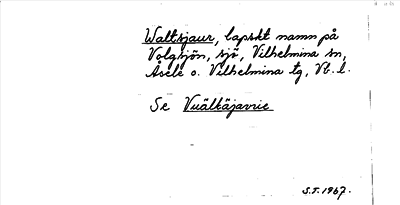 Waltsjaur, lapskt namn på
Volgsjön, sjö, Vilhelmina sn,
Åsele o. Vilhelmina tg, Vb. l.
Se Vuälkäjavrie
S.S. 1967.